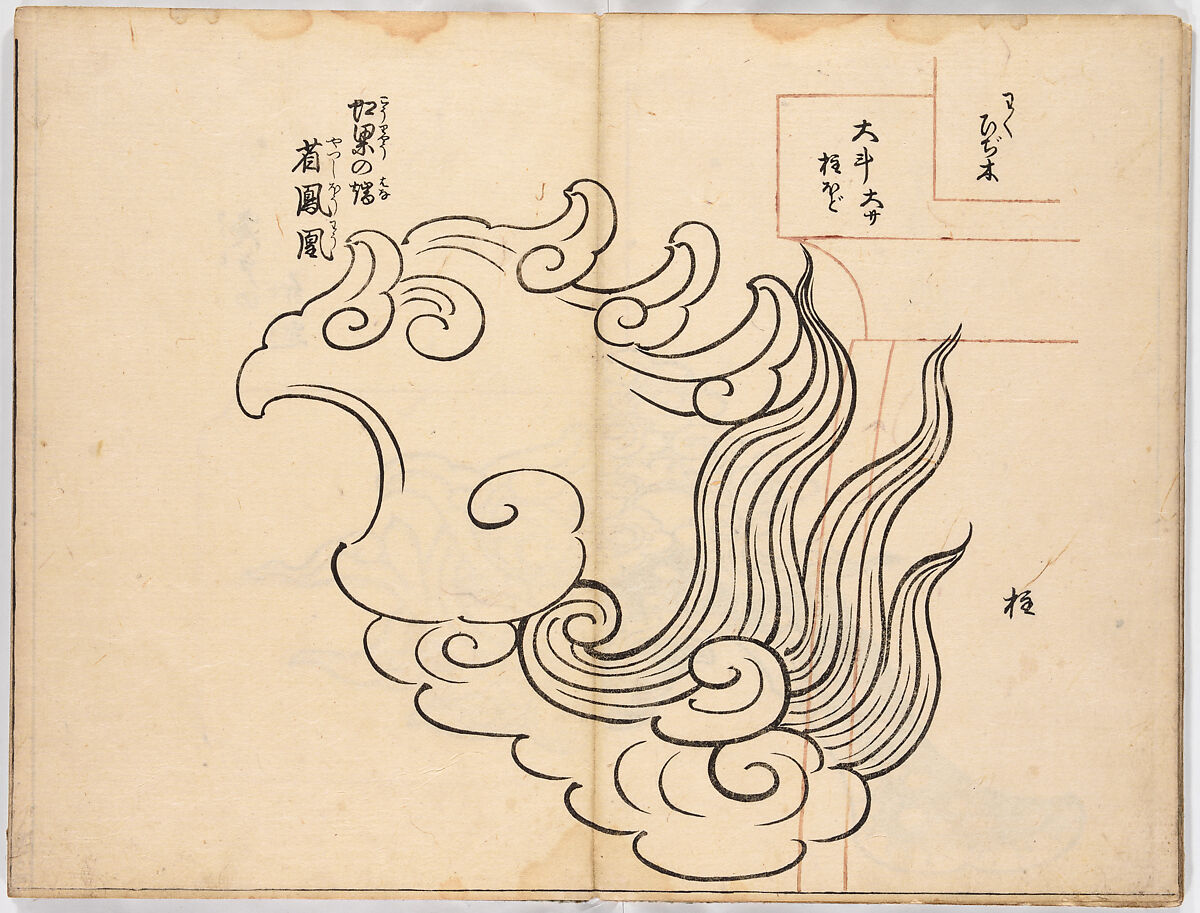 わく
ひぢ木
大斗 大サ
柱ほど
柱
虹梁の端
鳳凰